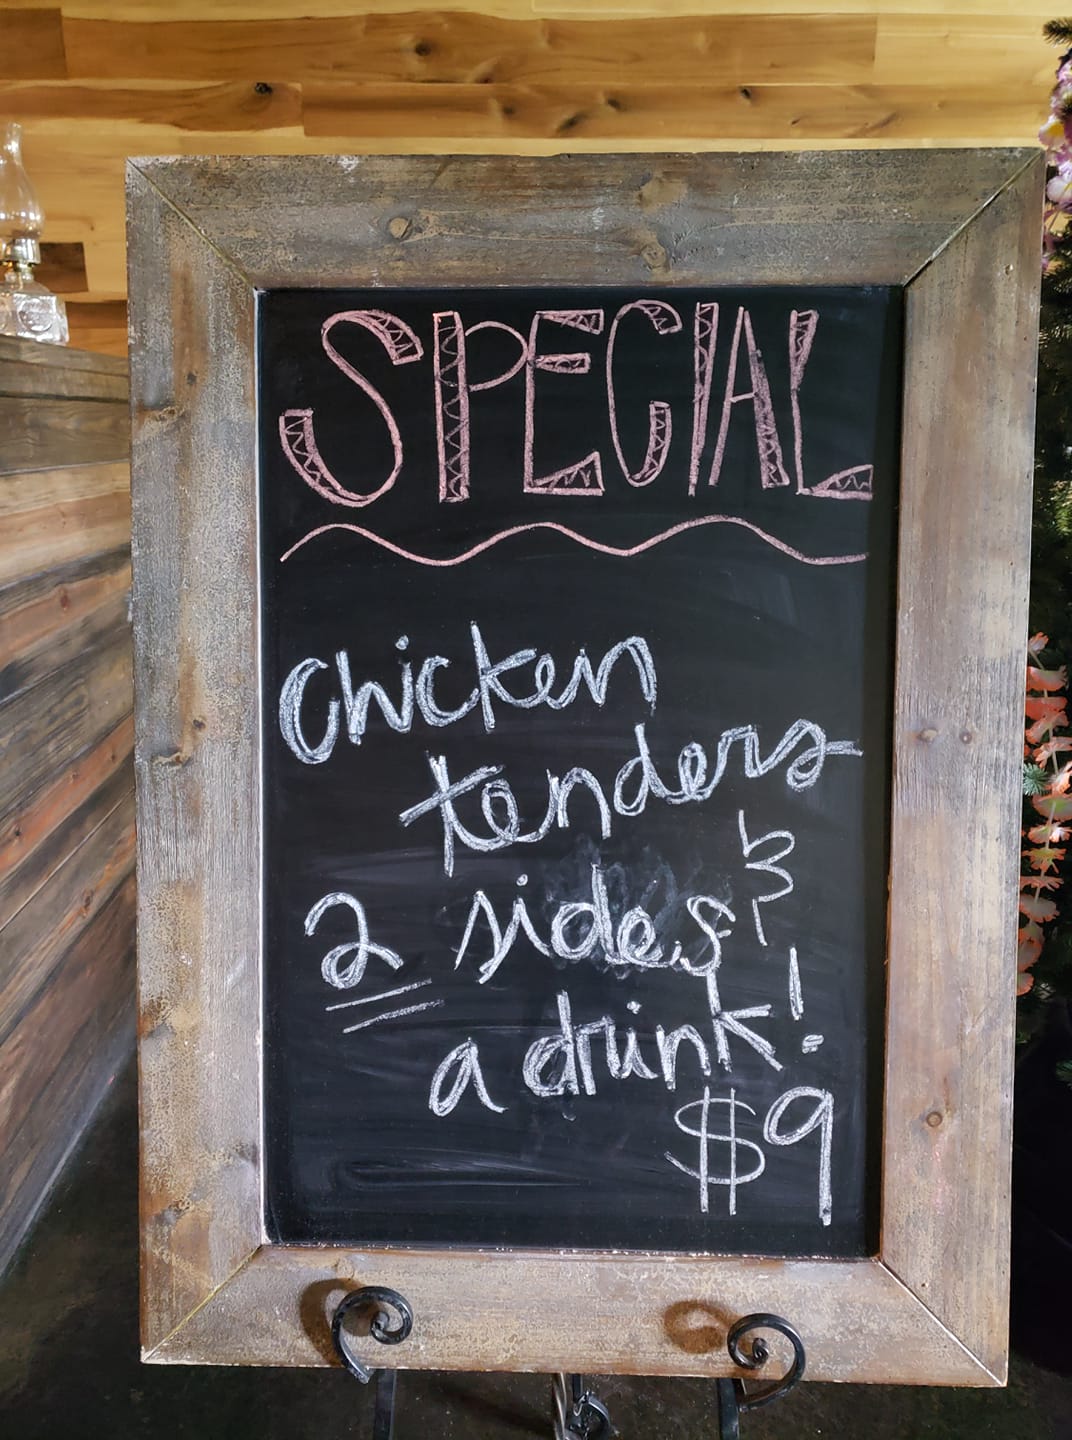 SPECIAL
Chicken
tenders
2 sides &
a drink!
$9